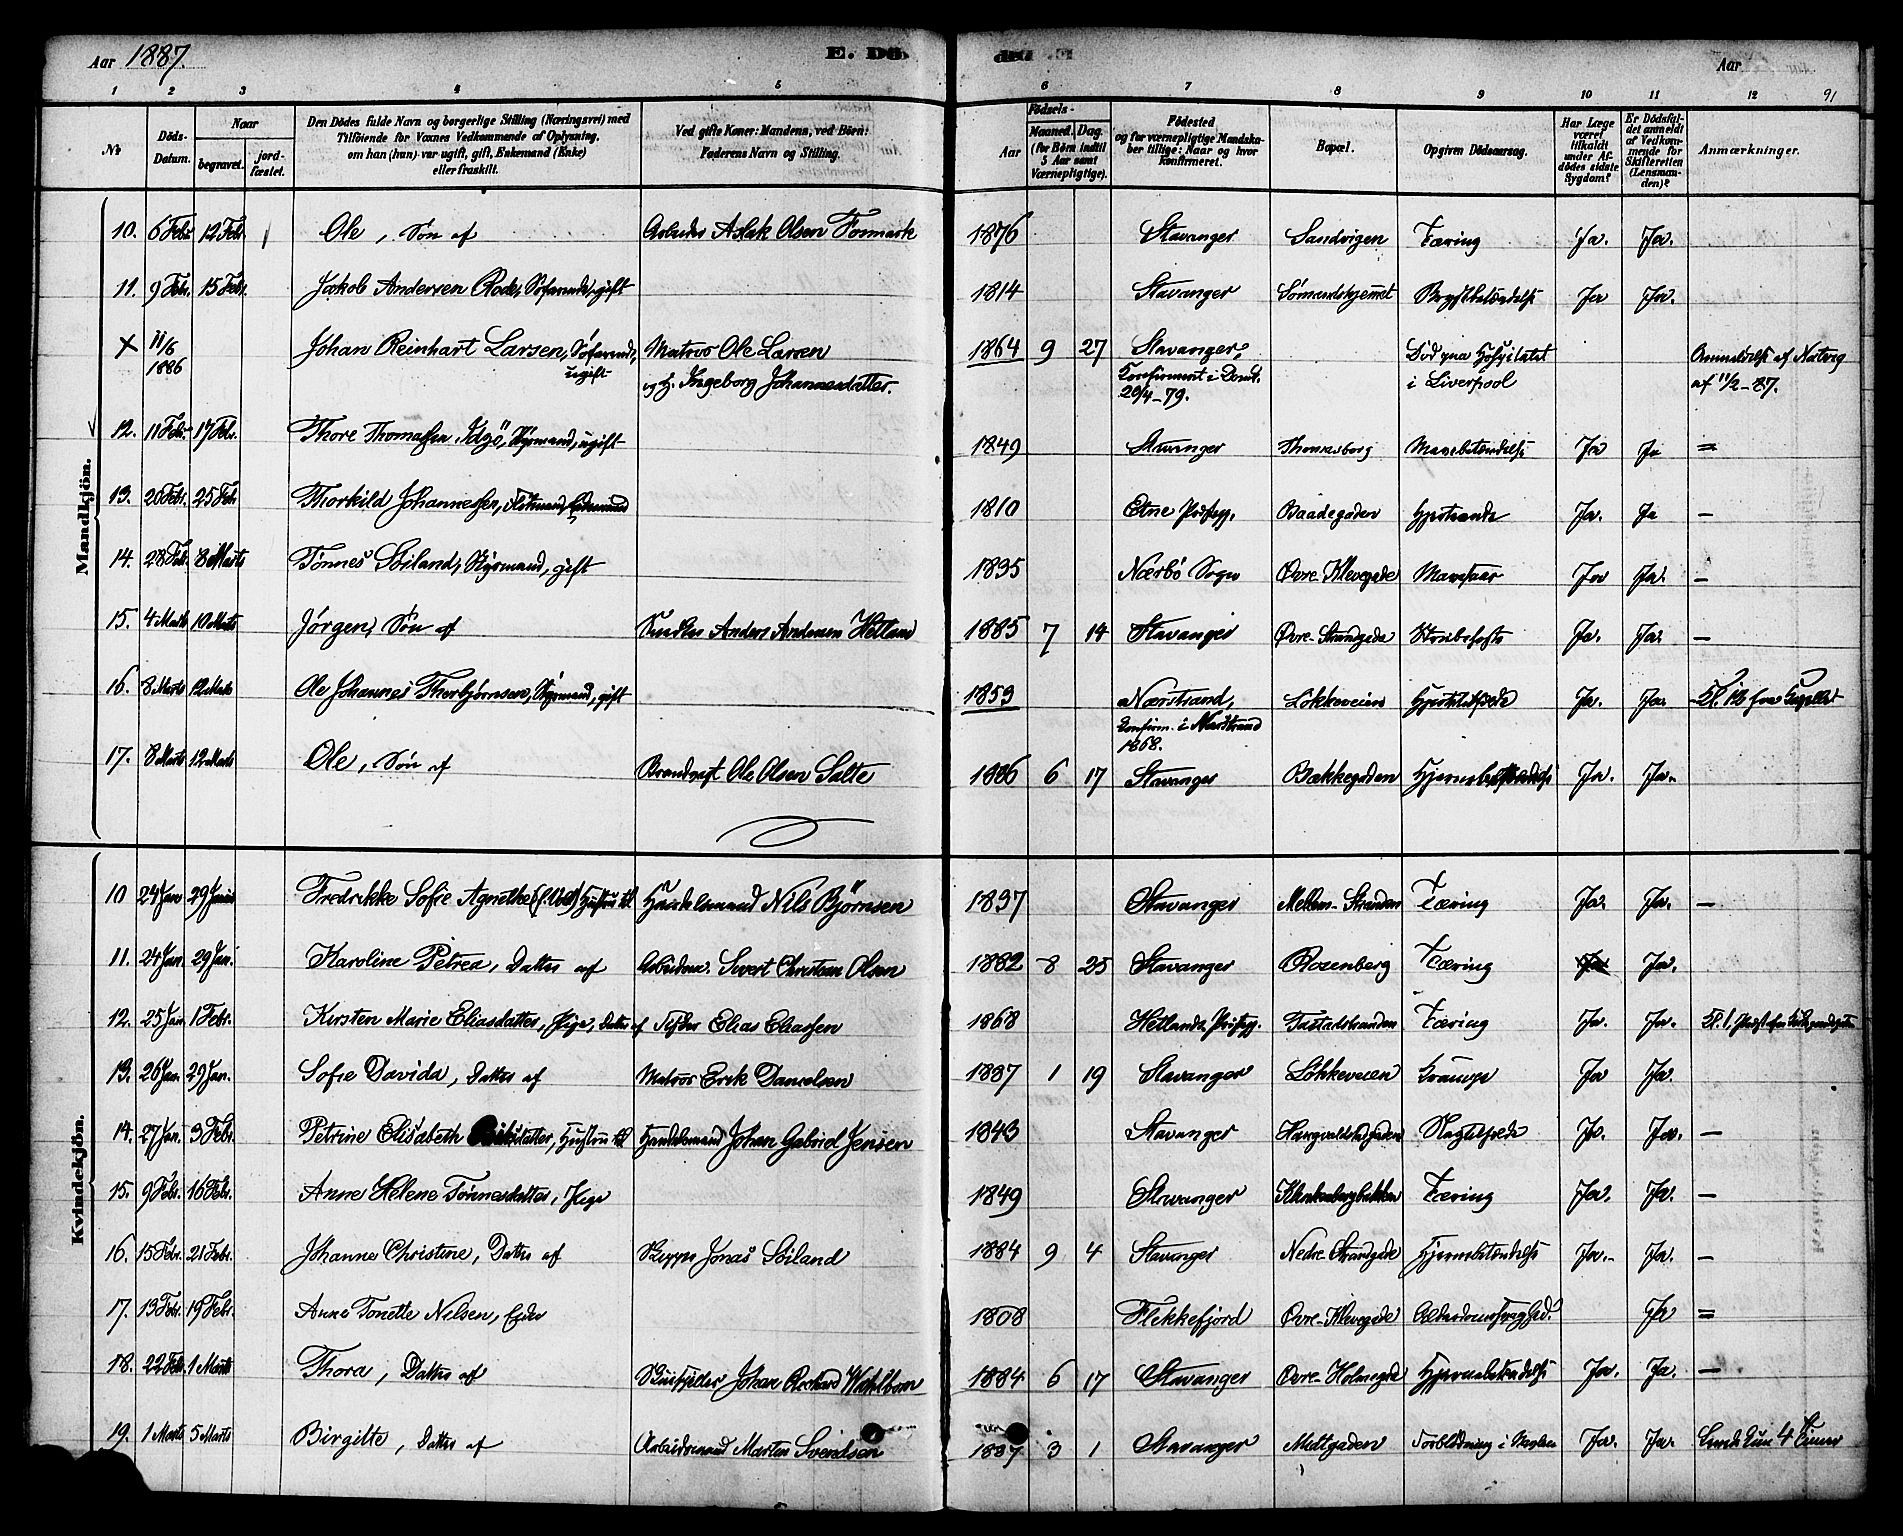 Aar 1887. E. Dö- E. Döde Aar
91
1 2 3 4 5 6 7 8 9 10 11 12
No Döds-Datum. Naar begravet. jord-fæstet. Den Dödes fulde Navn og borgerlige Stilling (Næringsvei) med Tilföiende for Voxnes Vedkommende af Oplysning, om han (hun) var ugift, gift, Enkemand (Enke) eller fraskilt. Ved gifte Koner: Mandens, ved Börn: Faderens Navn og Stilling. Födsels- Aar Maaned. Dag. (for Börn indtil 5 Aar samt Værnepligtige). Födested og for værnepligtige Mandskaber tillige: Naar og hvor konfirmeret. Bopæl. Opgiven Dödsaarsag. Har Læge været tilkaldt under Afdödes sidste Sygdom? Er Dödsfaldet anmeldt af Vedkommende for Skifteretten (Lensmanden)? Anmærkninger.
Mandkjön.
10. 6 Febr. 12 Febr. Ole, Sön af Arbeider Aslak Olsen Formark 1876 Stavanger Sandvigen Tæring Ja. Ja.
11. 9 Febr. 15 Febr. Jakob Andersen Söfarende, gift 1814 Stavanger Sømandshjemmet Brystbetændelse Ja Ja.
x 11/6 1886 Johan Reinhart Larsen, Söfarende, ugift Matros Ole Larsen og h. Ingeborg Johannesdatter. 1864 9 27 Stavanger, Konfirmeret i Domk. 20/4-79. Död paa Hospitalet i Liverpool Anmeldelse af af 11/2-87.
12. 11 Febr. 17 Febr. Thore Thomassen Idsö, Styrmand, ugift 1849 Stavanger Thomasborg Mavebetændelse Ja Ja =
13. 20 Febr. 25 Febr. Thorkild Johannessen, Enkemand 1810 Etne Præstegj. Baadegaden Ja. Ja -
14. 28 Febr. 8 Marts Tönnes Söiland, Styrmand, gift 1835 Nærbö Sogn Øvre Klevegade Mavesaar Ja Ja. -
15. 4 Marts 10 Marts Jørgen, Søn af Anders Andersen Hetland 1885 7 14 Stavanger Øvre Strandgade Strubehoste Ja. Ja. -
16. 8 Marts 12 Marts Ole Johannes Thorbjørnsen, Styrmand, gift 1853 Nærstrand, Konfirm. i Nærstrand 1868. Løkkeveien Hjertelidfælde Ja. Ja. Kl. 12 fra Capellet
17. 8 Marts 12 Marts Ole, Sön af Ole Olsen Salte 1886 6 17 Stavanger Bakkegaden Hjernebetændelse Ja. Ja.
Kvindekjön.
10 24 Jan 29 Januar Fredrikke Sofie Agnethe Hustru til Handelsmand Nils Björnsen 1837 Stavanger Mellem-Stranden Tæring Ja. Ja. -
11. 24 Jan. 29 Jan. Karoline Petrea, Datter af Arbeidsm. Sivert Christian Olsen 1882 8 25 Stavanger Rosenberg Tæring Ja Ja.
12. 25 Jan. 1 Febr. Kirsten Marie Eliasdatter, Pige, Datter af Fisker Elias Eliassen 1868 Hetlands Præstegj. Tastadstranden Tæring Ja. Ja.
13. 26 Jan. 29 Jan. Sofie Davida, Datter af Matros Erik Danielsen 1887 1 19 Stavanger Løkkeveien Krampe Ja Ja.
14. 27 Jan. 3 Febr. Petrine Elisabeth Hustru til Handelsmand Johan Gabriel Jensen 1843 Stavanger Ja. Ja. -
15. 9 Febr. 16 Febr. Anne Helene Tönnesdatter, Pige 1849 Stavanger Klinkenbergbakken Tæring Ja. Ja. -
16. 15 Febr. 21 Febr. Johanne Christine, Datter af Skipper Jonas Söiland 1884 9 4 Stavanger Nedre Strandgade Hjernebetændelse Ja. Ja. -
17. 13 Febr. 19 Febr. Anne Tonette Nilsen, Enke 1808 Flekkefjord Øvre-Klevegade Alderdomssvaghed. Ja =
18. 22 Febr. 1 Marts Thora, Datter af Johan Rickard Wahlborn 1884 6 17 Stavanger Øvre-Holmegade Hjernebetændelse Ja. Ja. -
19. 1 Marts 5 Marts Birgitte, Datter af Arbeidsmand Marten Svendsen 1887 3 1 Stavanger Midtgaden Forblødning i Navlen Ja. Ja. Levede kun 4 Timer